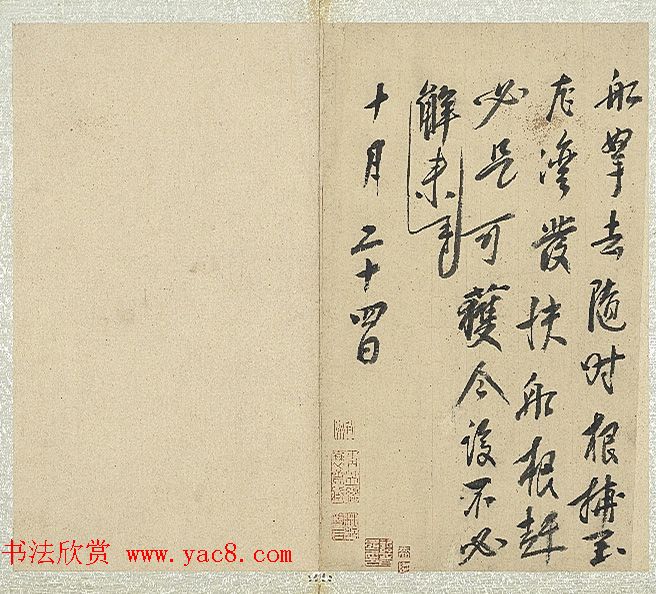 船去随时根捕至
灣發扶船根赶
必是可獲今後不必
解来
十月二十四日
书法欣赏 www.yac8.com